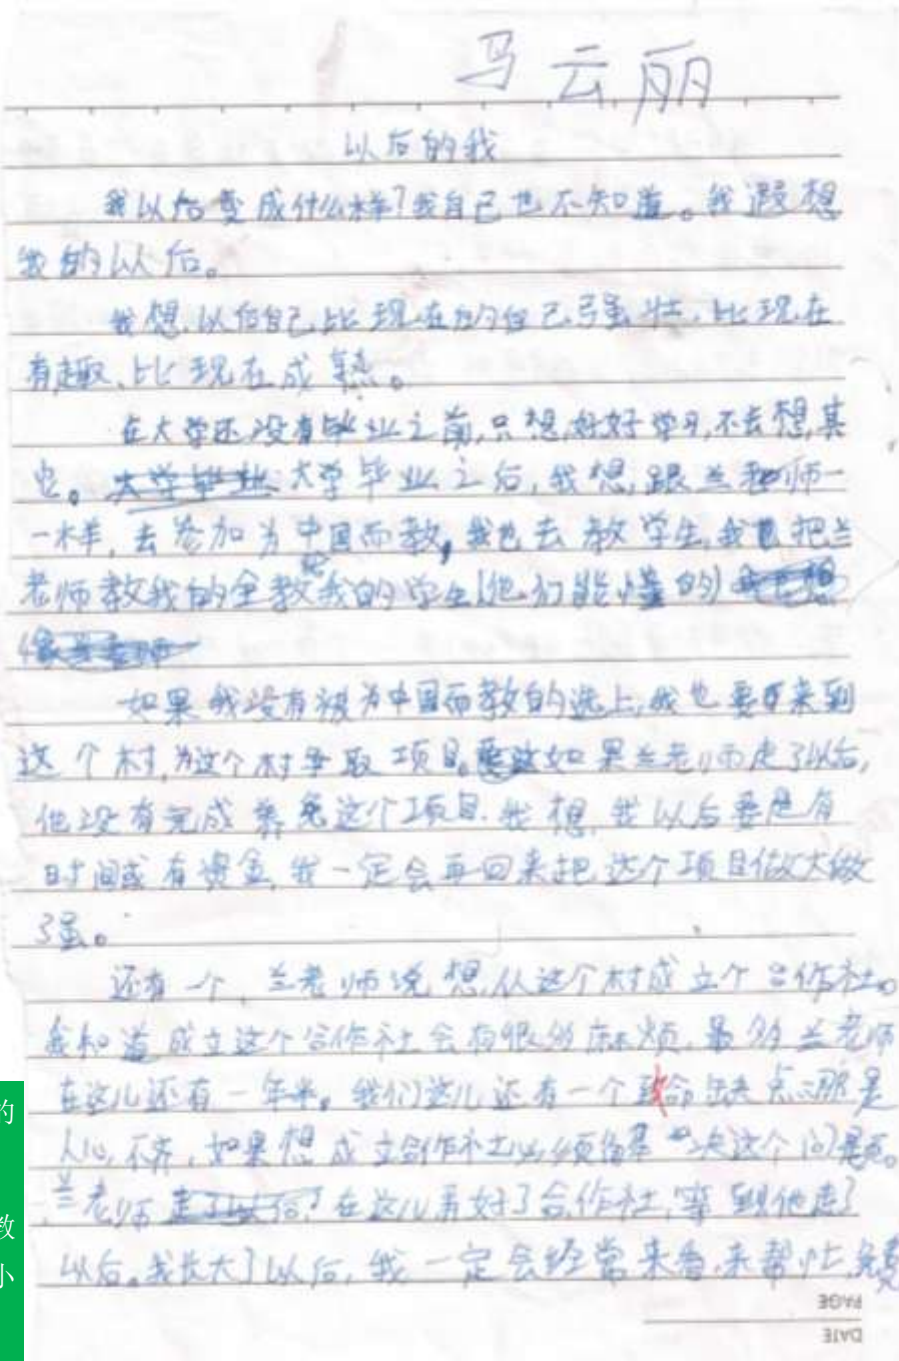 马云丽
以后的我
我以后变成什么样?我自己也不知道。我假想
我的以后。
我想,以后自己比现在的自己强壮,比现在
有趣、比现在成熟。
在大学还没有毕业之前,只想好好学习,不去想其
也。大学毕业 大学毕业之后,我想跟兰老师一
一样,去参加为中国而教,我也去教学生,我把兰
老师教我的全教我的学生(他们能懂的)
如果我没有被为中国而教的选上,我也要来到
这个村,为这个村争取项目。如果兰老师走了以后,
他没有完成养兔这个项目,我想,我以后要是有
时间或有资金,我一定会再回来把这个项目做大做
强。
还有一个,兰老师说想从这个村成立个合作社。
我知道成立这个合作社会有很多麻烦,最多兰老师
在这儿还有一年半。我们这儿还有一个致命缺点:那是
人心不齐,如果想成立合作社必须 决这个问题。
兰老师走了以后!在这儿弄好了合作社,等到他走了
以后。我长大了以后,我一定会经常来看,来帮忙,免费
的
教
小
PAGE
DATE